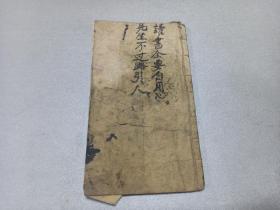 讀書全要自用心
先生不过路引人